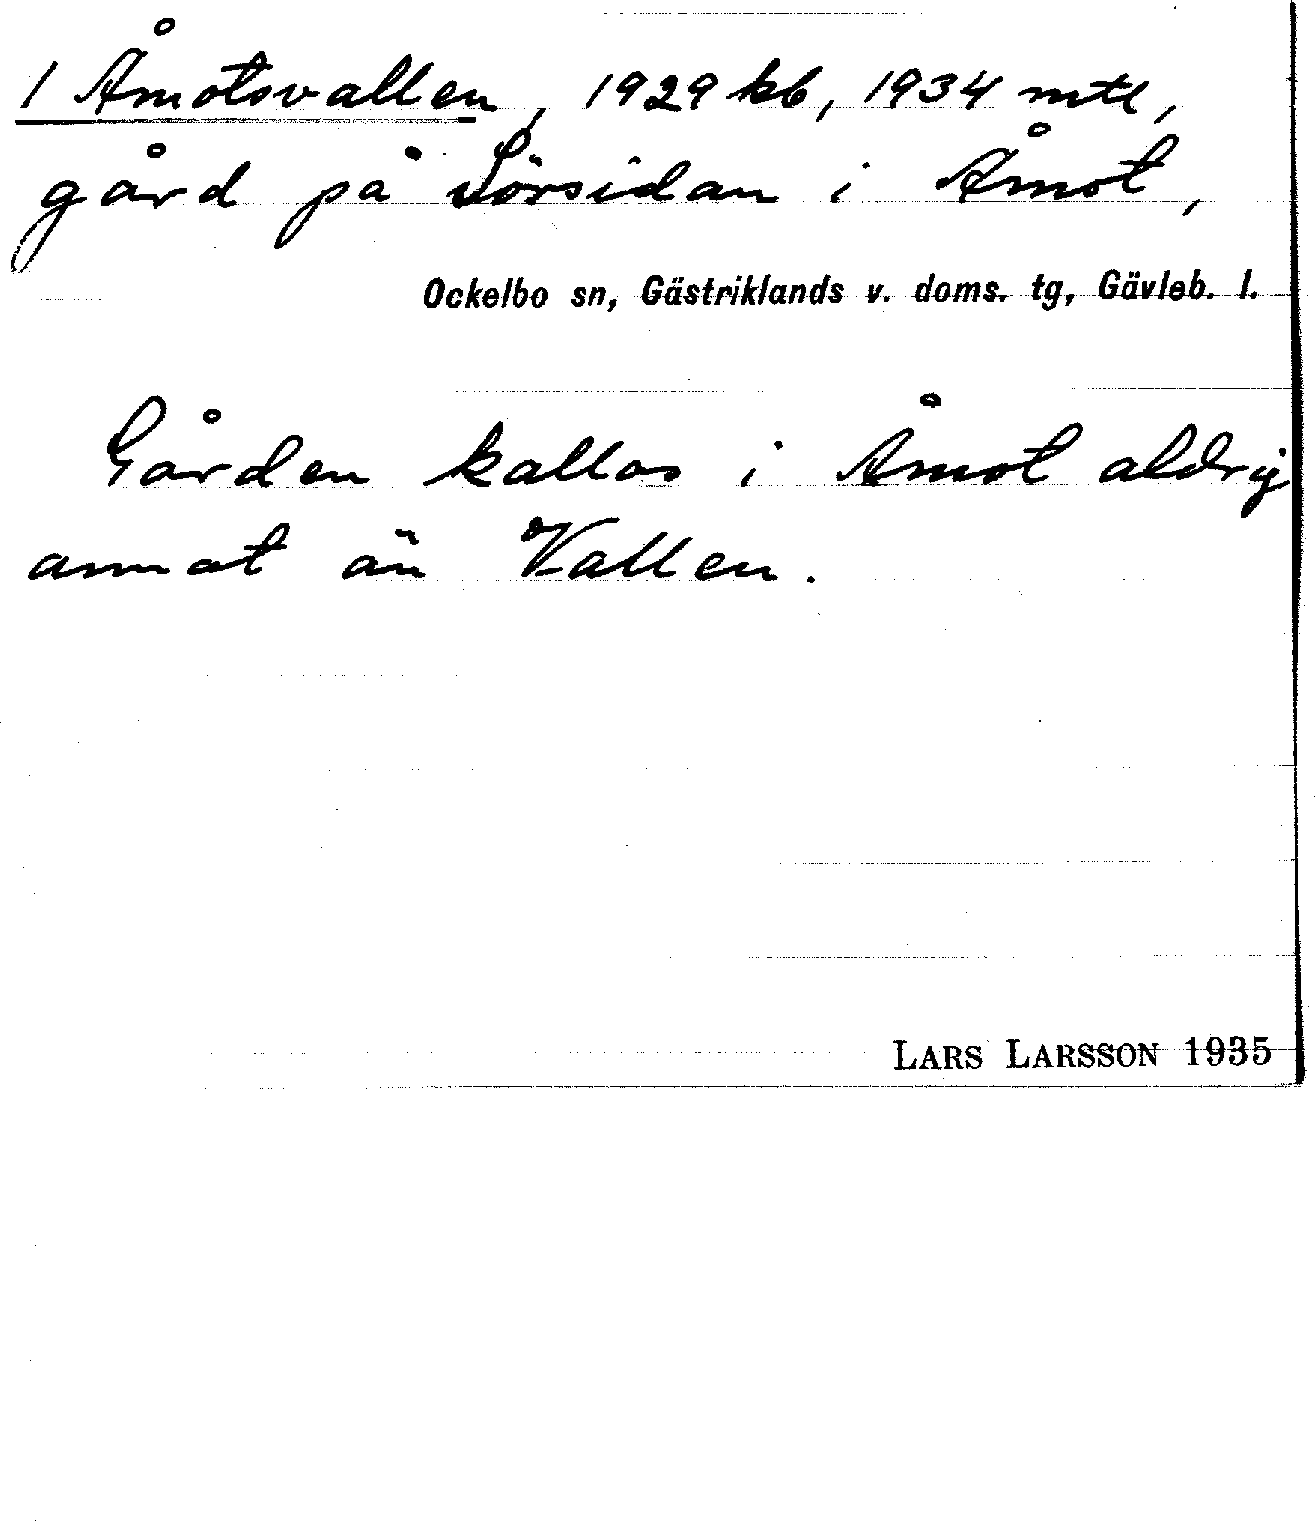 1 Åmotsvallen, 1929 kb, 1934 mtl,
gård på Sörsidan i Åmot,
Ockelbo sn, Gästriklands v. doms. tg, Gävleb. l.
Gården kallas i Åmot aldrig
annat än Vallen.
LARS LARSSON 1935